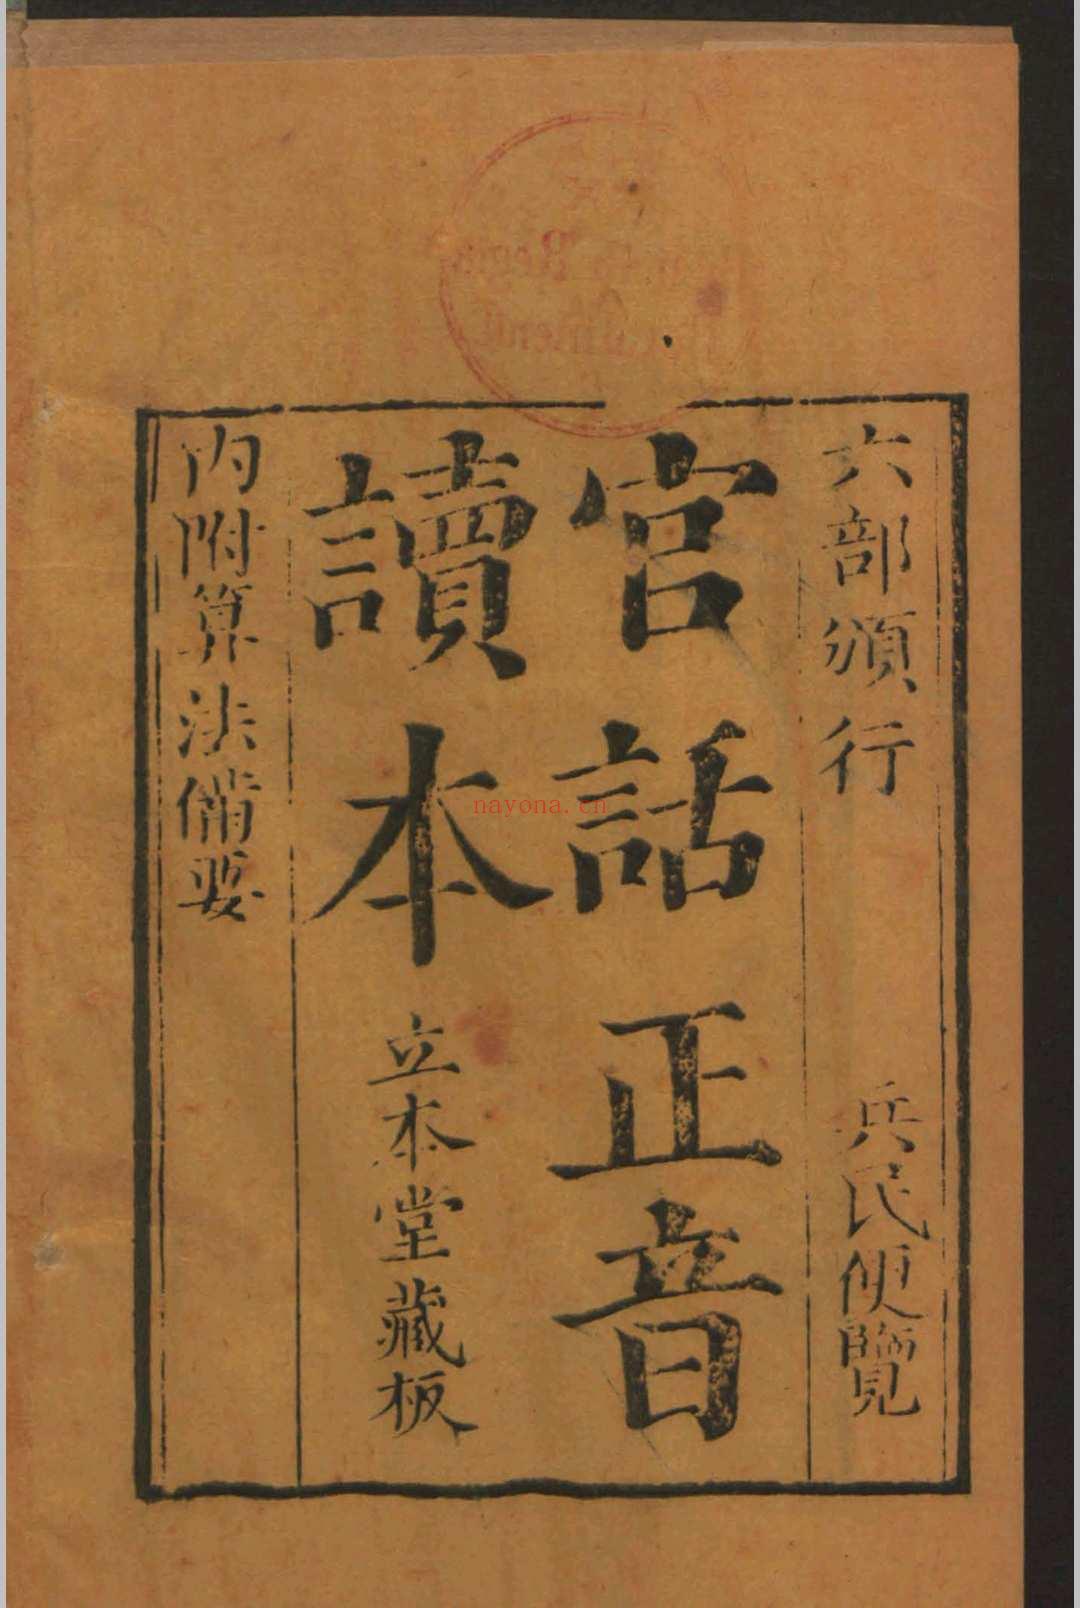 六部頒行
兵民便覽
官話正音
讀本
立本堂藏板
內附算法備要
nayona.cn